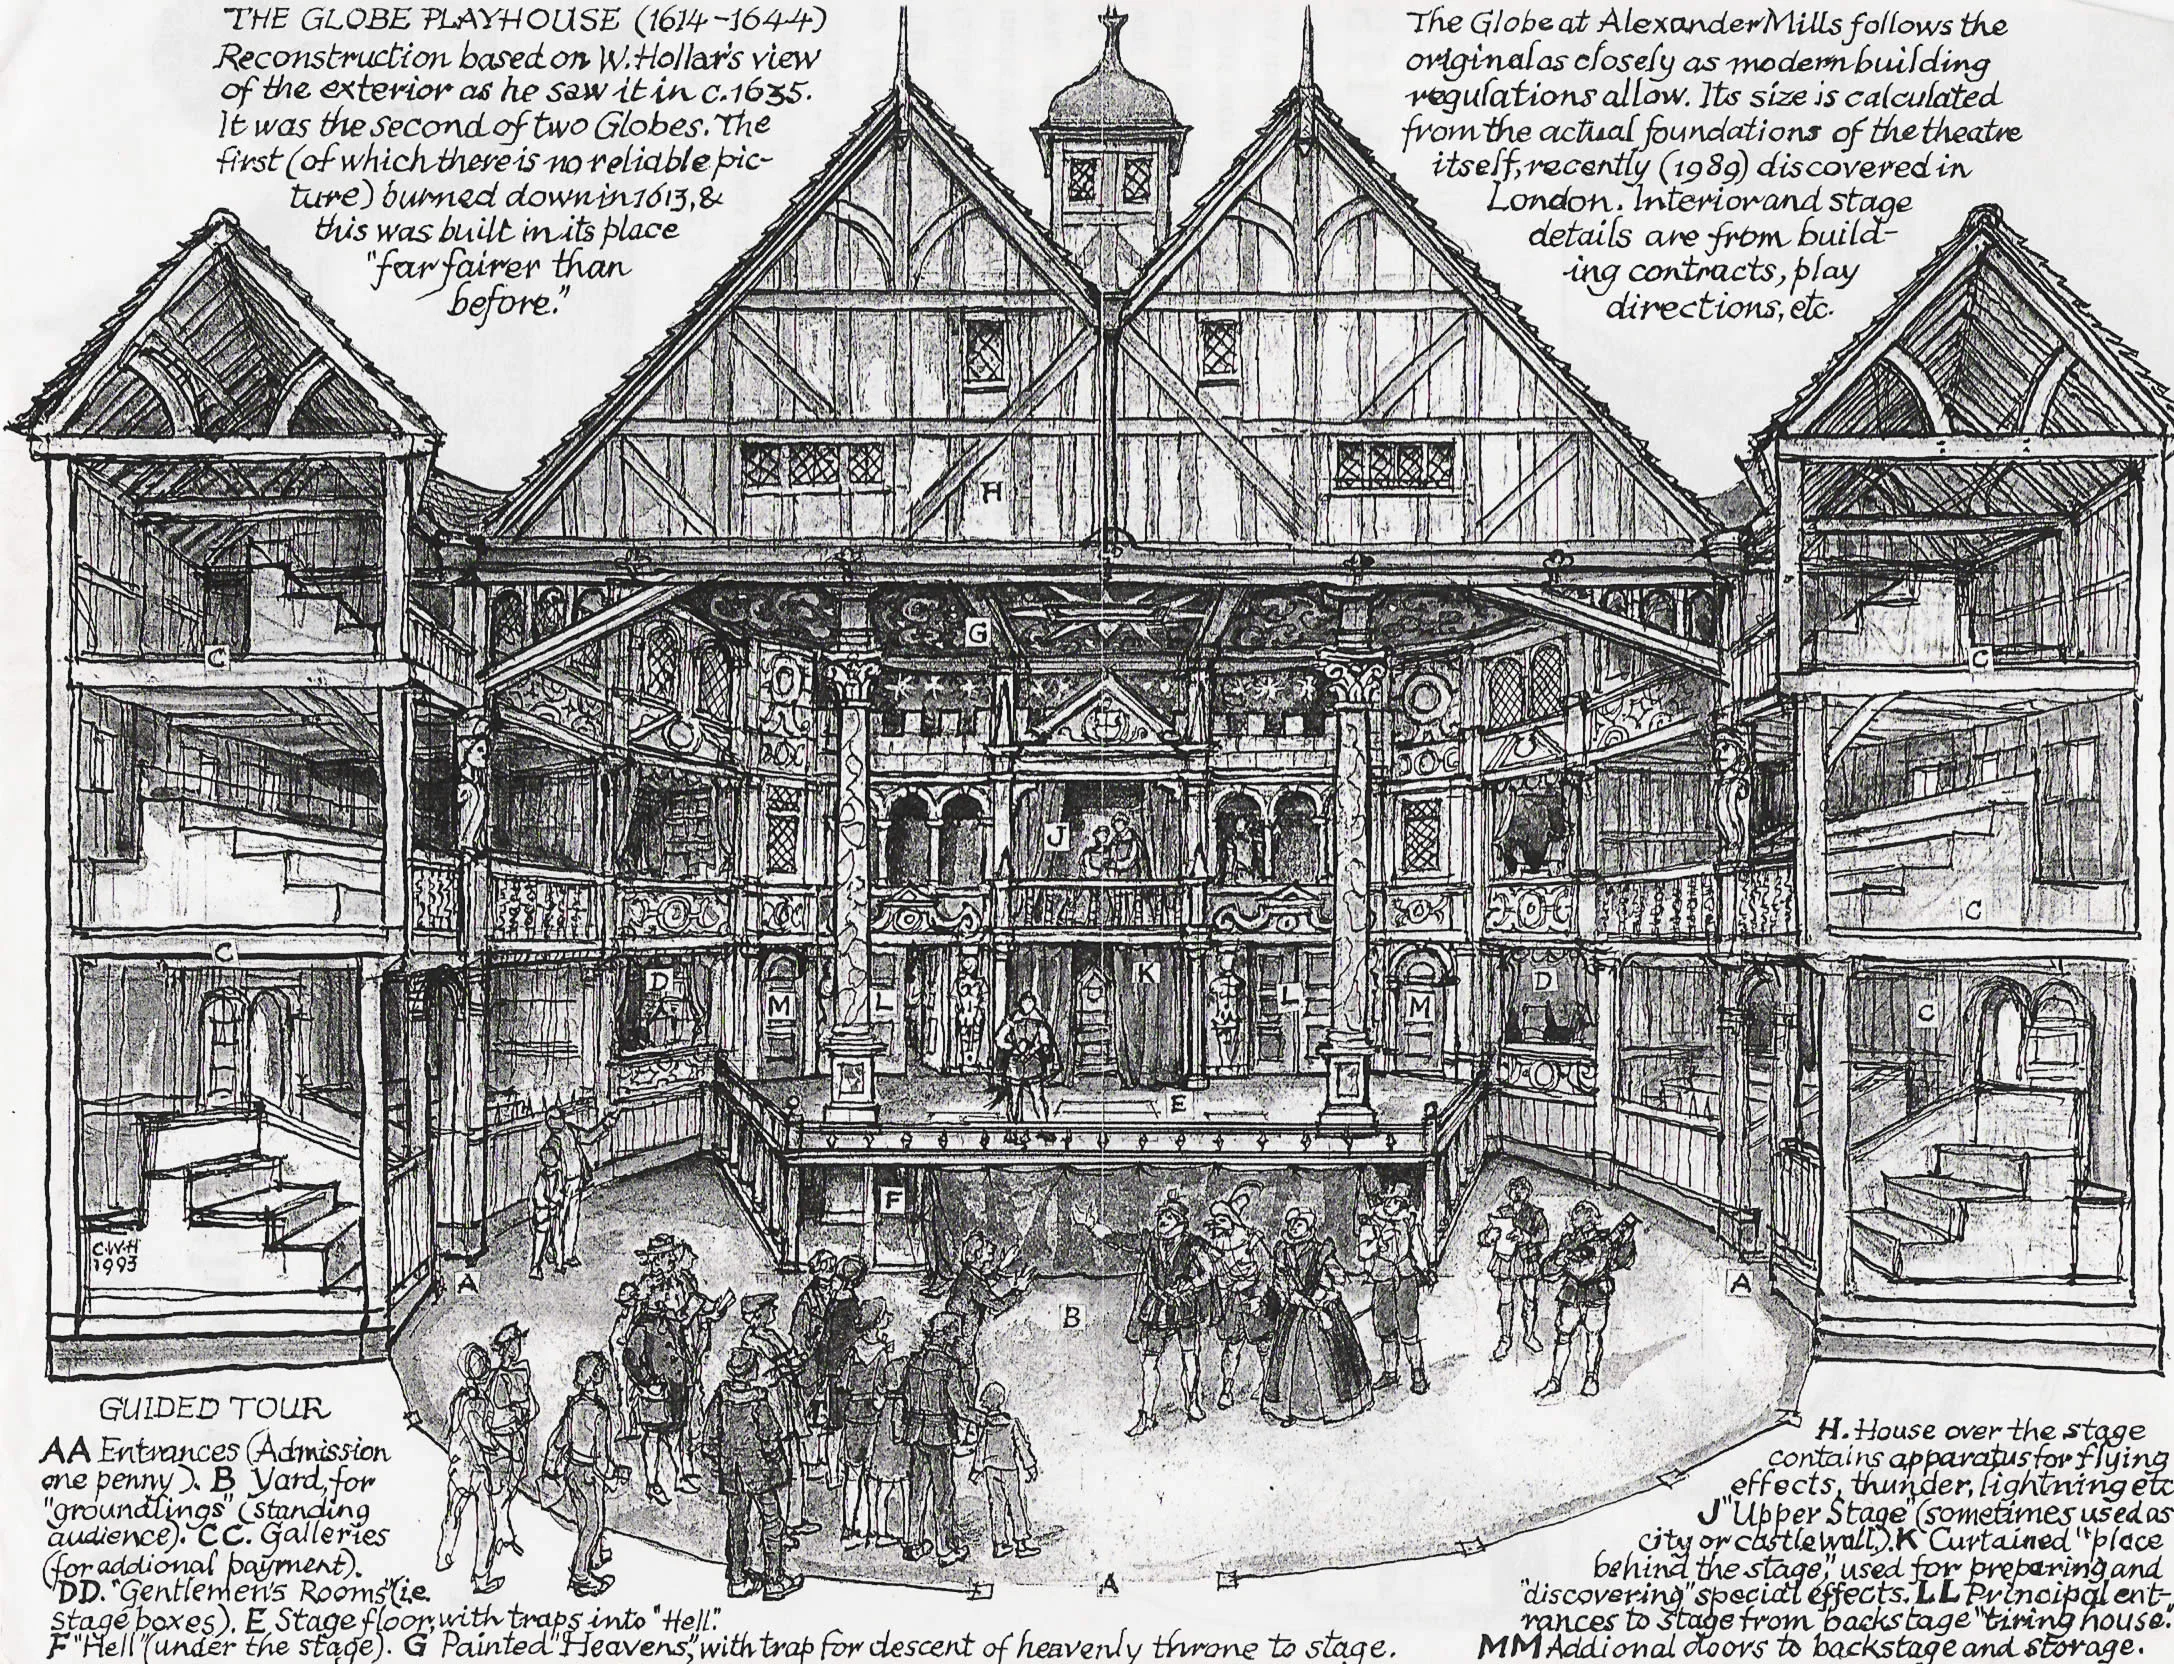 THE GLOBE PLAYHOUSE (1614-1644)
Reconstruction based on W. Hollar's view
of the exterior as he saw it in c.1635.
It was the second of two Globes. The
first (of which there is no reliable pic-
ture) burned down in 1613, &
this was built in its place
"far fairer than
before."
The Globe at Alexander Mills follows the
original as closely as modern building
regulations allow. Its size is calculated
from the actual foundations of the theatre
itself, recently (1989) discovered in
London. Interior and stage
details are from build-
ing contracts, play
directions, etc.
H
G
C
C
J
C
C
C
D
M
L
K
L
M
D
C
E
F
C.W.H
1993
A
B
A
A
GUIDED TOUR
AA Entrances (Admission
one penny). B Yard, for
"groundlings" (standing
audience). CC. Galleries
(for addional payment).
DD. "Gentlemen's Rooms" (i.e.
stage boxes). E Stage floor, with traps into "Hell".
F "Hell" (under the stage). G Painted "Heavens", with trap for descent of heavenly throne to stage.
H. House over the stage
contains apparatus for flying
effects, thunder, lightning etc
J "Upper Stage" (sometimes used as
city or castle wall). K Curtained "place
behind the stage", used for preparing and
"discovering" special effects. LL Principal ent-
rances to stage from backstage "tiring house."
MM Addional doors to backstage and storage.